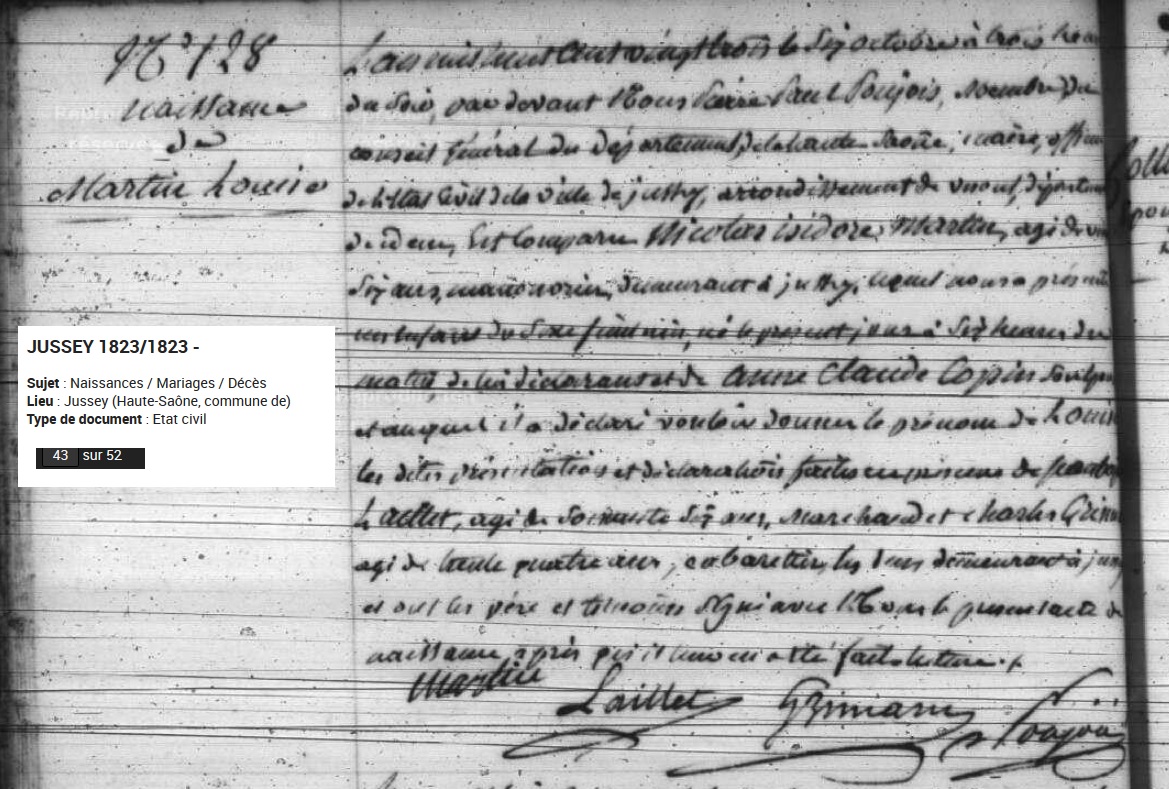 N° 128
naissance
de
Martin Louise
L'an mil huit cent vingt trois le six octobre à trois heures
du soir, par devant Nous Pierre Paul Poujois, Membre du
conseil général du département de la haute Saône, maire, officier
de l'état Civil de la ville de jussey, arrondissement de vesoul, département
du den, Est Comparu Nicolas isidore Martin, agé de vingt
Six ans, manouvrier, demeurant à jussey, lequel nous a présenté
un Enfant du Sexe féminin, né le present jour à Six heures du
matin, de lui déclarant et de Anne Claude Copin Son épouse
et auquel il a déclaré vouloir donner le prénom de Louise
les dites présentation et déclaration faites en presence de
Laillet, agé de Soixante Six ans, Marchand et charles
agé de trente quatre ans, cabaretier, les demeurant à jussey
et ont les père et témoins Signé avec Nous le present acte de
naissance après qu'il leur en a été fait lecture./.
Martin
Laillet
JUSSEY 1823/1823 -
Sujet : Naissances / Mariages / Décès
Lieu : Jussey (Haute-Saône, commune de)
Type de document : Etat civil
43 sur 52